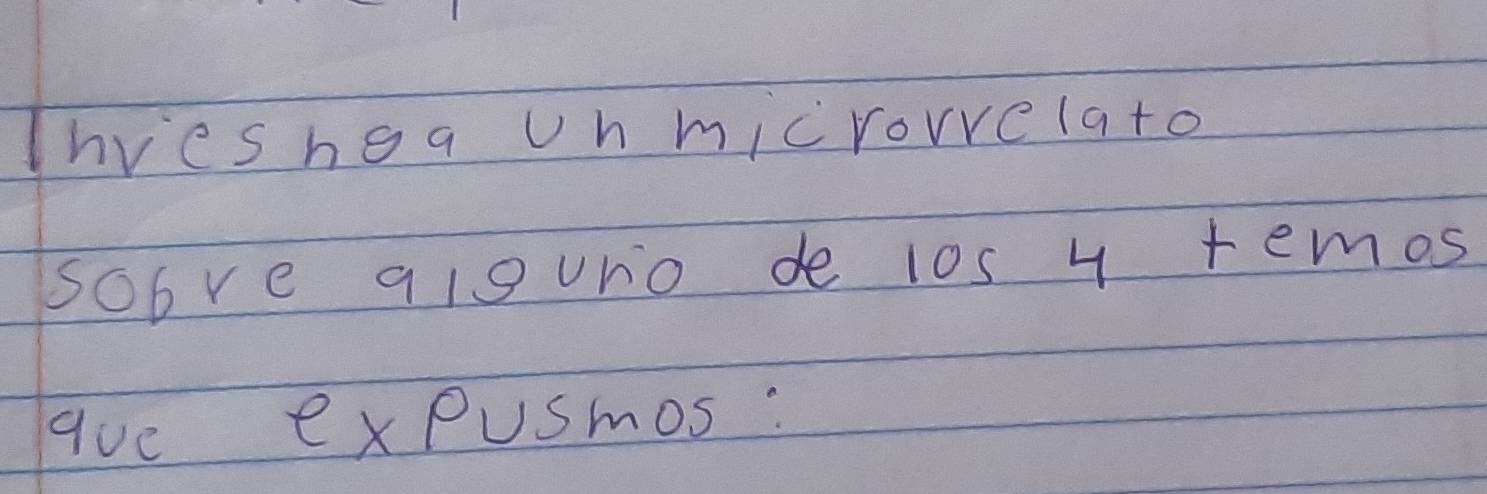 Inviesnga un microrrelato
sobre alguno de los 4 temas
que expusmos: